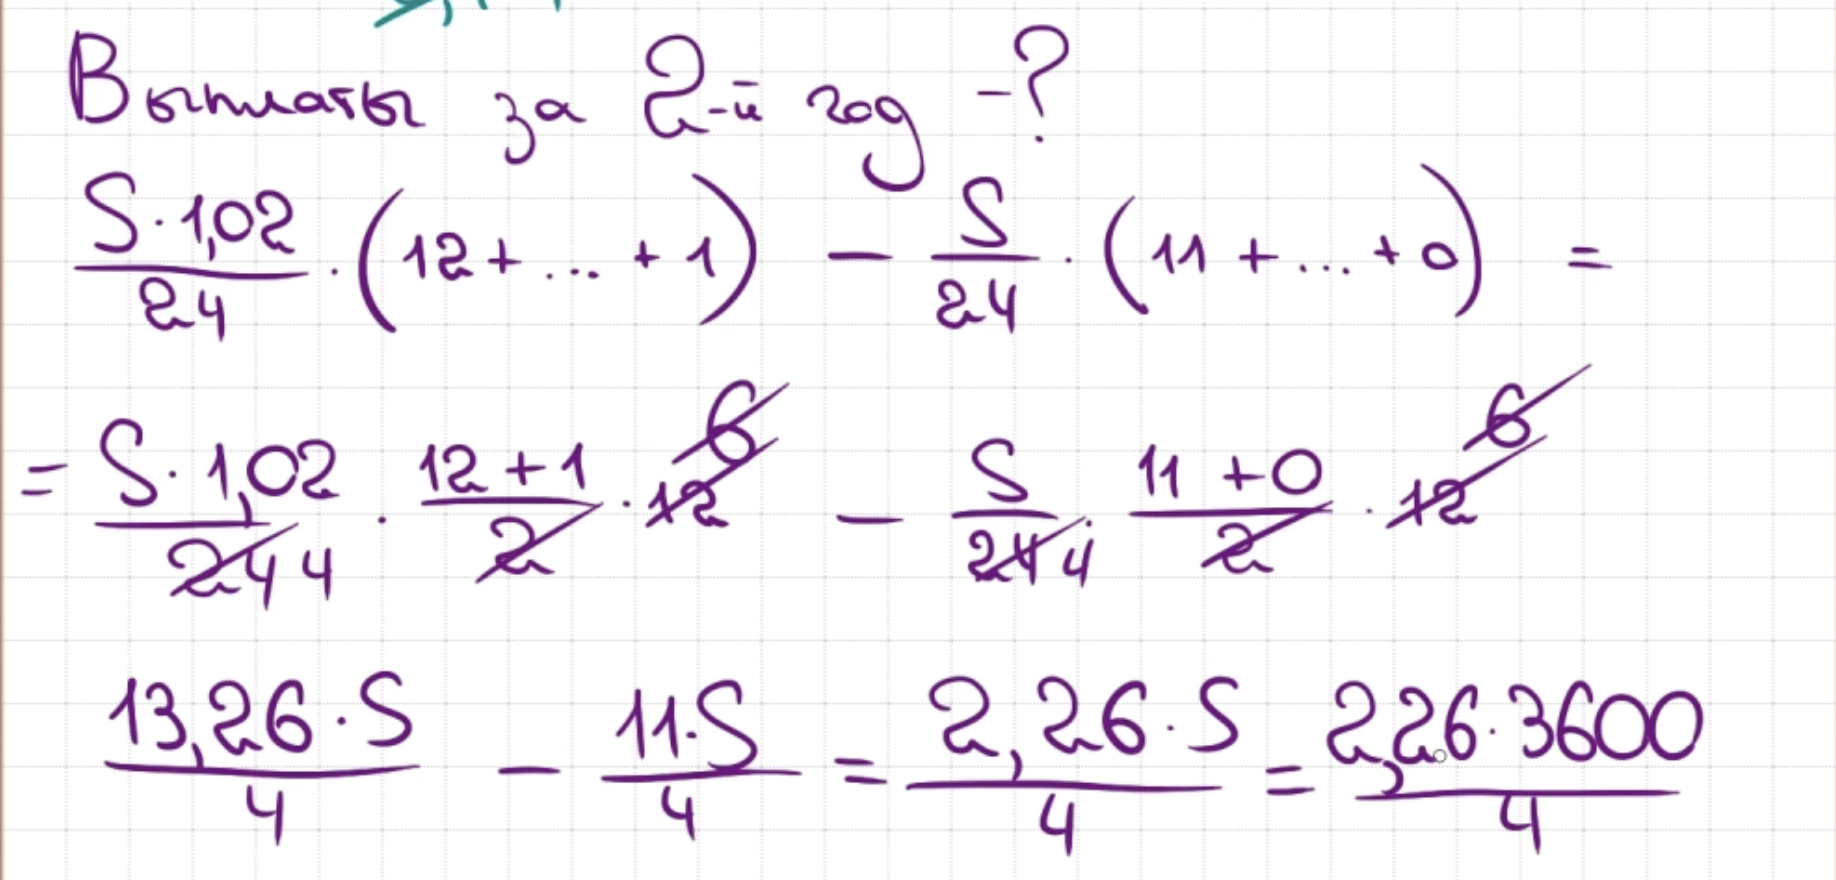 Выплаты за 2-й год - ?
S · 1,02 / 24 · (12 + ... + 1) - S / 24 · (11 + ... + 0) =
= S · 1,02 / 24 4 · 12 + 1 / 2 · 12 6 - S / 24 4 · 11 + 0 / 2 · 12 6
13,26 · S / 4 - 11 · S / 4 = 2,26 · S / 4 = 2,26 · 3600 / 4